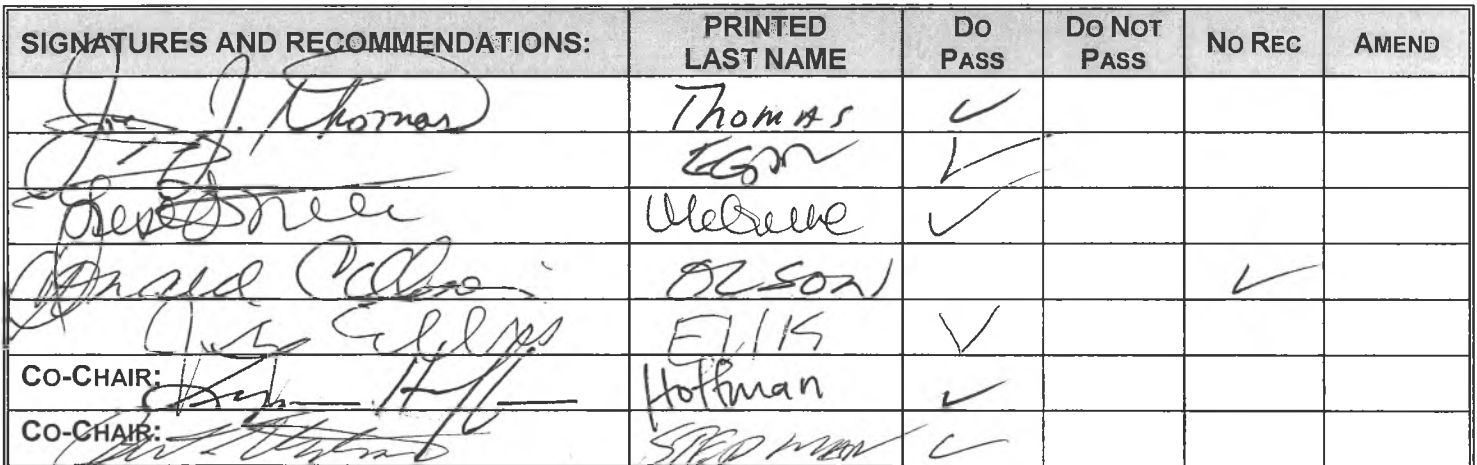 SIGNATURES AND RECOMMENDATIONS: PRINTED LAST NAME DO PASS DO NOT PASS NO REC AMEND
J. Thomas Thomas ✓
EGAN ✓
✓
Donald C Olson OLSON ✓
Ellis ✓
CO-CHAIR: Hoffman ✓
CO-CHAIR: STEDMAN ✓